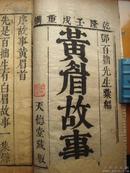 乾隆壬戌重鐫
鄧百拙先生彙編
黄眉故事
天德堂藏版
序故事黄眉首
先是百拙生有白眉故事